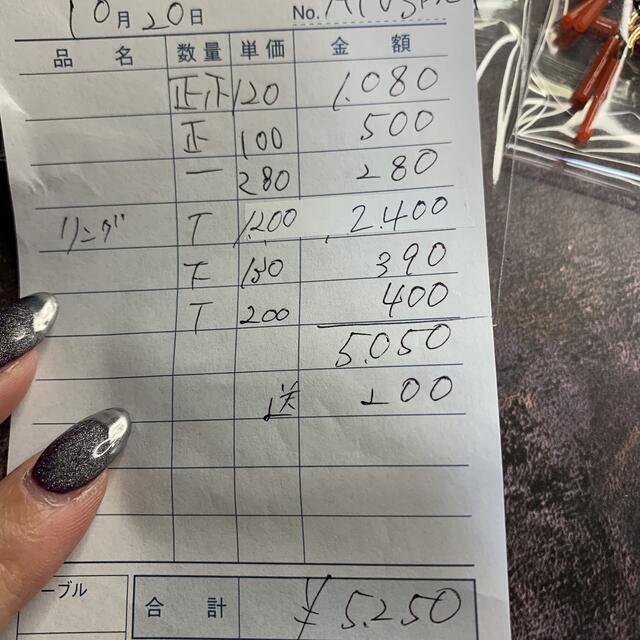 10月20日 No.
品名 数量 単価 金額
正下 120 1.080
正 100 500
一 280 280
リング T 1.200 2.400
下 130 390
T 200 400
5.050
送 200
ーブル
合計 ¥5.250